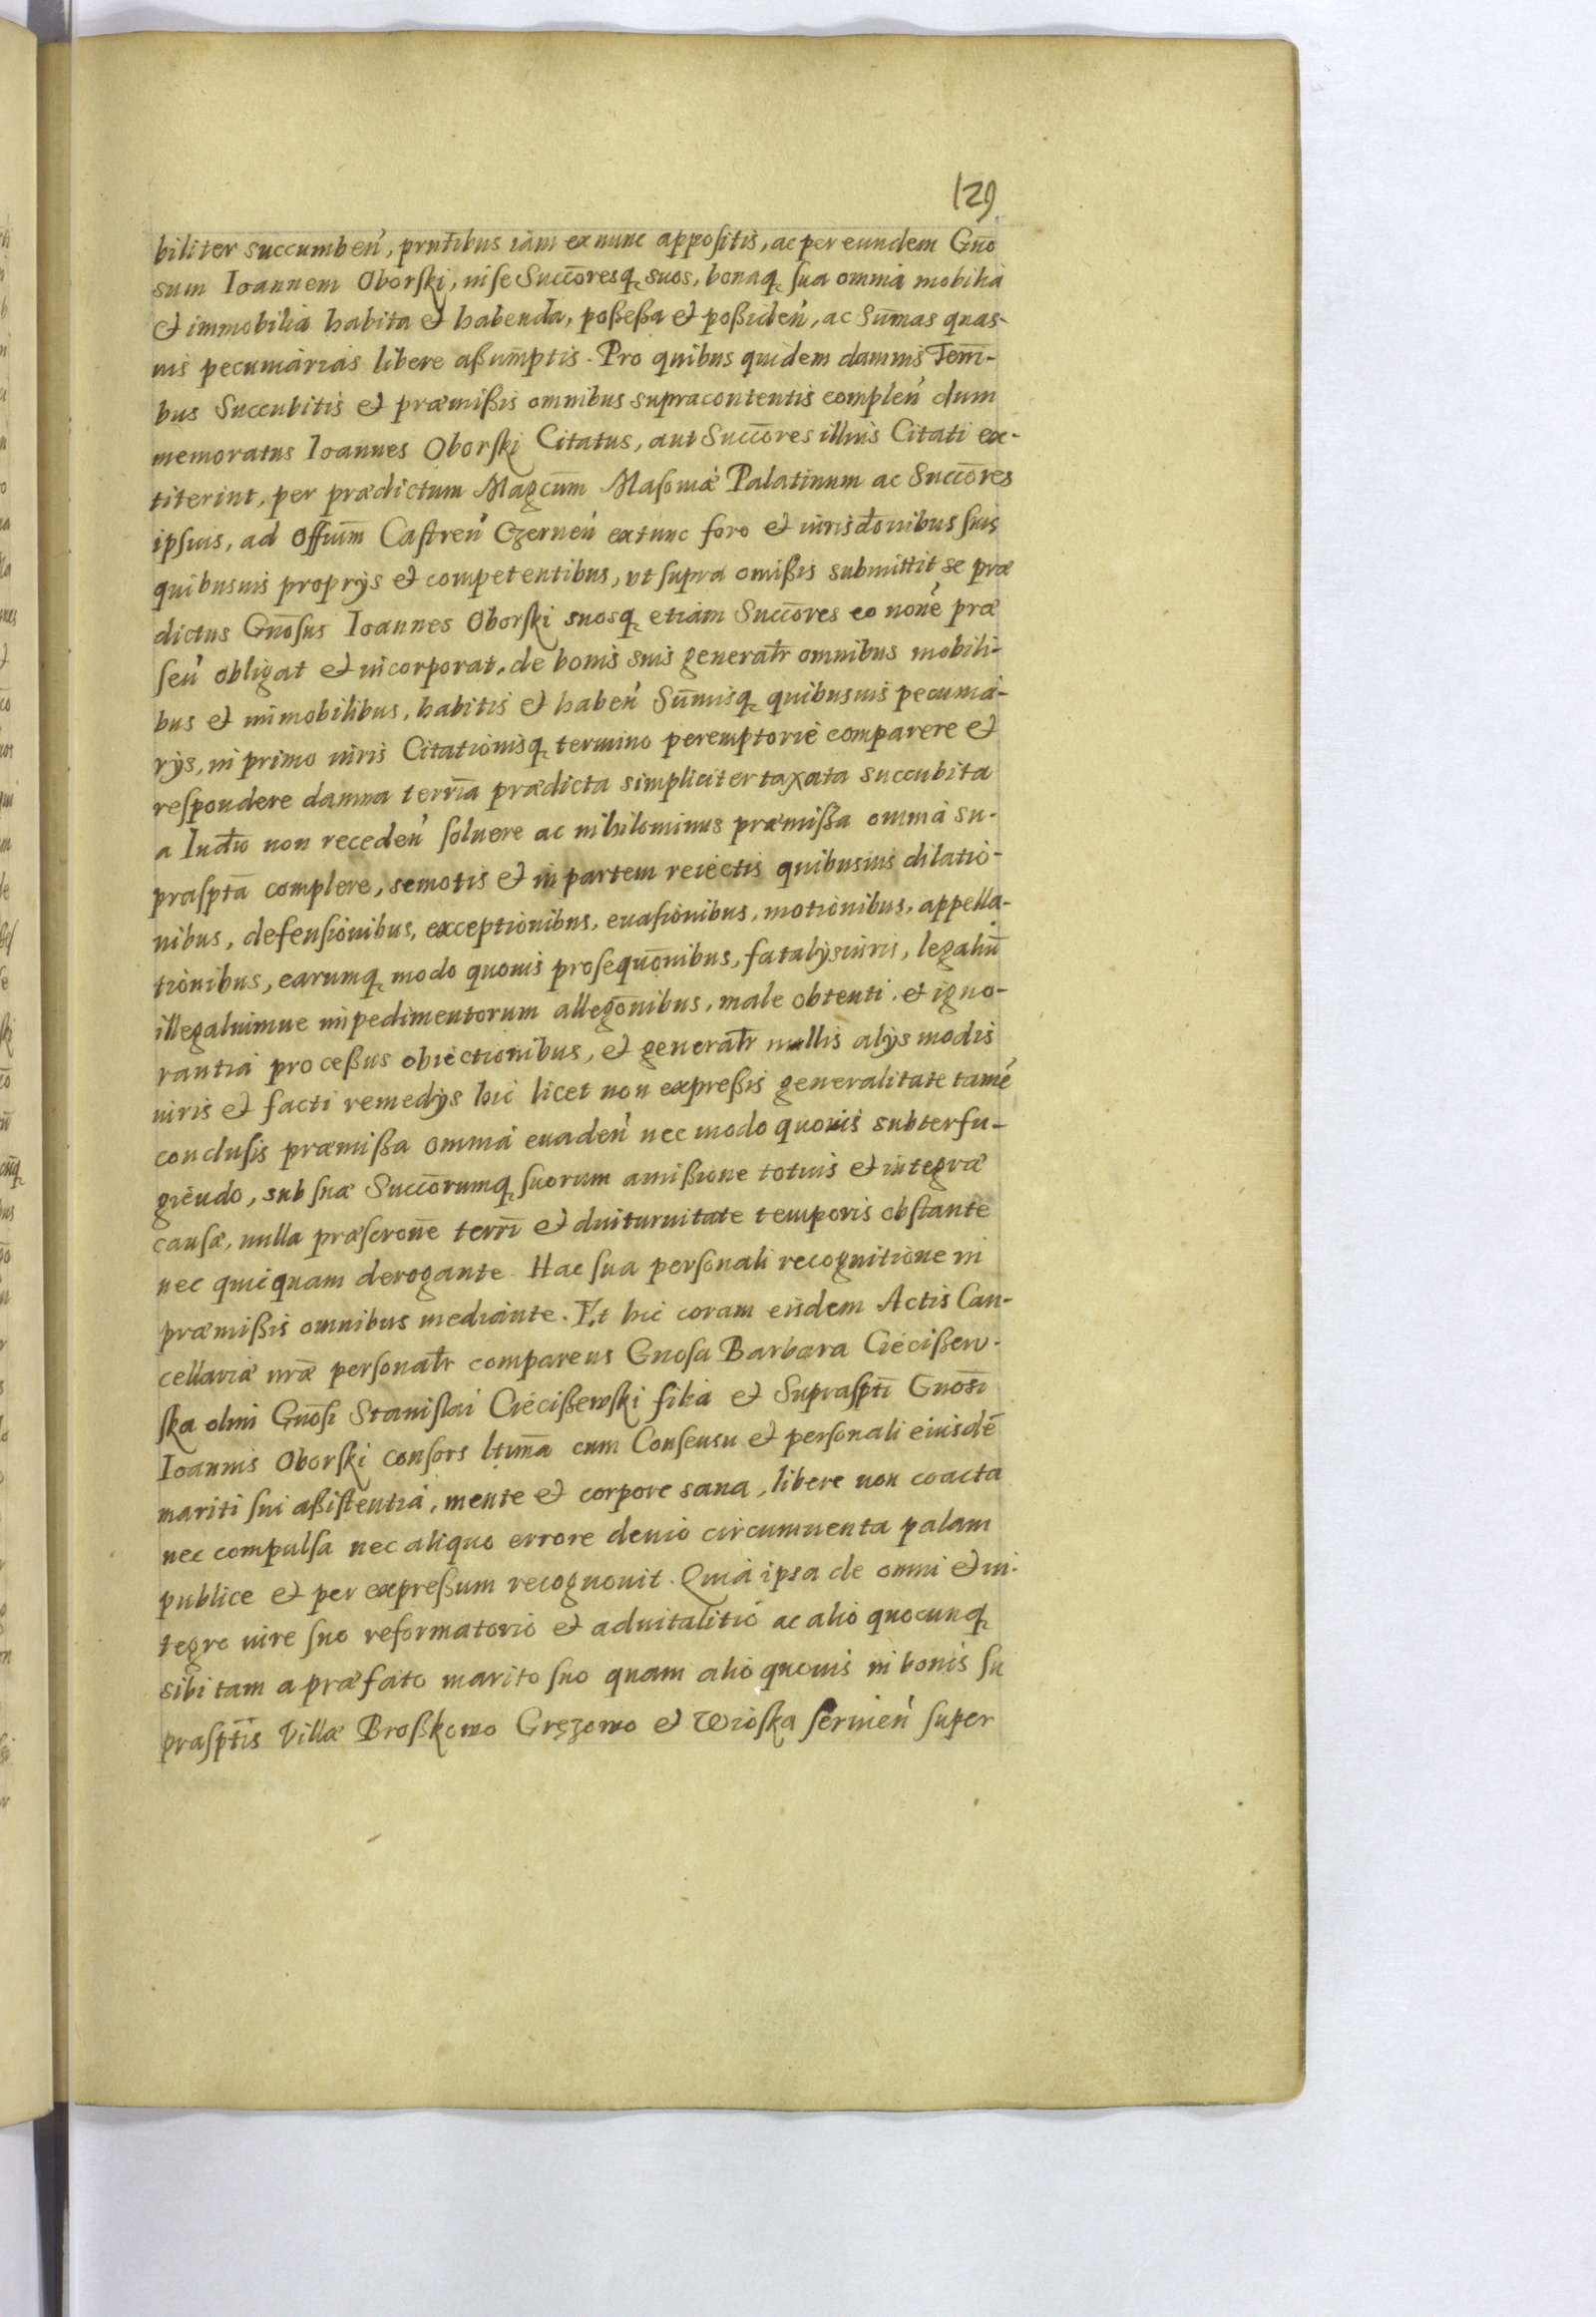 129
biliter succumben̄, prn̄tibus iam ex nunc appositis, ac per eundem Gn̄o
sum Ioannem Oborſki, in ſe Succōresq; suos, bonaq; ſua omnia mobilia
et immobilia habita et habenda, poßeßa et poßiden̄, ac Sūmas quas-
uis pecuniarias libere aßūmptis. Pro quibus quidem damnis Tem̄-
bus Succubitis et præmißis omnibus supracontentis complen̄ dum
memoratus Ioannes Oborſki Citatus, aut Succōres illius Citati ex-
titerint, per prædictum Magcūm Maſouiæ Palatinum ac Succōres
ipſius, ad Offium̄ Caſtren̄ Czernen̄ extunc foro et iurisdōnibus ſuis
quibusuis proprijs et competentibus, vt ſupra omißis submittit se præ
dictus Gn̄oſus Ioannes Oborſki suosq; etiam Succōres eo noīe præ
ſen̄ obligat et incorporat, de bonis suis generalr̄ omnibus mobili-
bus et immobilibus, habitis et haben̄ Sūmisq; quibusuis pecunia-
rijs, in primo iuris Citationisq; termino peremptorie comparere et
reſpondere damna terrīa prædicta simpliciter taxata succubita
a Iudīo non receden̄ ſoluere ac nihilominus præmißa omnia su-
praſptā complere, semotis et in partem reiectis quibusuis dilatio-
nibus, defenſionibus, exceptionibus, euaſionibus, motionibus, appella-
tionibus, earumq; modo quouis proſequōnibus, fatalijs iuris, legaliū
illegaliumue impedimentorum allegōnibus, male obtenti et igno-
rantia proceßus obiectionibus, et generalr̄ nullis alijs modis
iuris et facti remedijs hic licet non expreßis generalitate tamē
concluſis præmißa omnia euaden̄ nec modo quouis subterfu-
giendo, sub ſuæ Succōrumq; ſuorum amißione totius et integræ
cauſæ, nulla præſcrōne terrī et diuturnitate temporis obſtante
nec quicquam derogante. Hac ſua perſonali recognitione in
præmißis omnibus mediante. Et hic coram eisdem Actis Can-
cellariæ nr̄æ perſonalr̄ comparens Gnoſa Barbara Ciecißew-
ſka olim Gn̄oſi Staniſlai Ciecißewſki filia et Supraſptī Gnoſī
Ioannis Oborſki conſors lt̄ima cum Conſenſu et perſonali eiusdē
mariti ſui aßiſtentia, mente et corpore sana, libere non coacta
nec compulſa nec aliquo errore deuio circumuenta palam
publice et per expreßum recognouit. Quia ipsa de omni et in-
tegro iure ſuo reformatorio et aduitalitio ac alio quocunq;
sibi tam a præfato marito ſuo quam alio quouis in bonis ſu
praſptīs Villæ Broßkowo Gręzowo et Wioſka ſeruien̄ ſuper